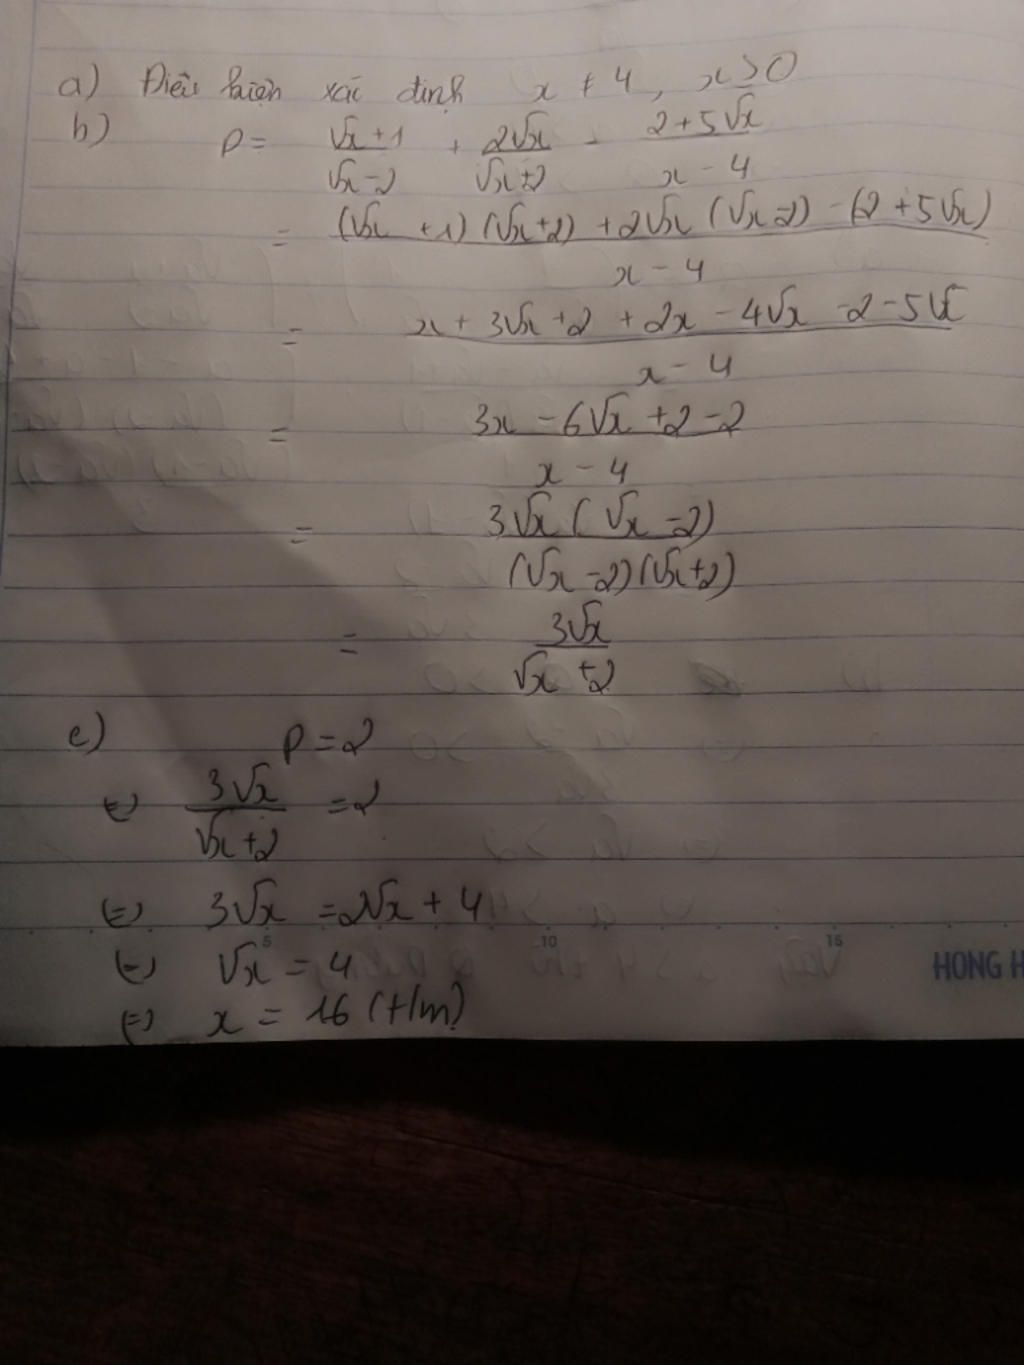 a) Điều kiện xác định x ≠ 4, x ≥ 0
b) P = (√x+1)/(√x-2) + 2√x/(√x+2) - (2+5√x)/(x-4)
= ((√x+1)(√x+2)+2√x(√x-2)-(2+5√x))/(x-4)
= (x+3√x+2+2x-4√x-2-5√x)/(x-4)
= (3x-6√x+2-2)/(x-4)
= (3√x(√x-2))/((√x-2)(√x+2))
= 3√x/(√x+2)
c) P = 2
(=) 3√x/(√x+2) = 2
(=) 3√x = 2√x + 4
5 10 15
(=) √x = 4
HONG H
(=) x = 16 (t/m)